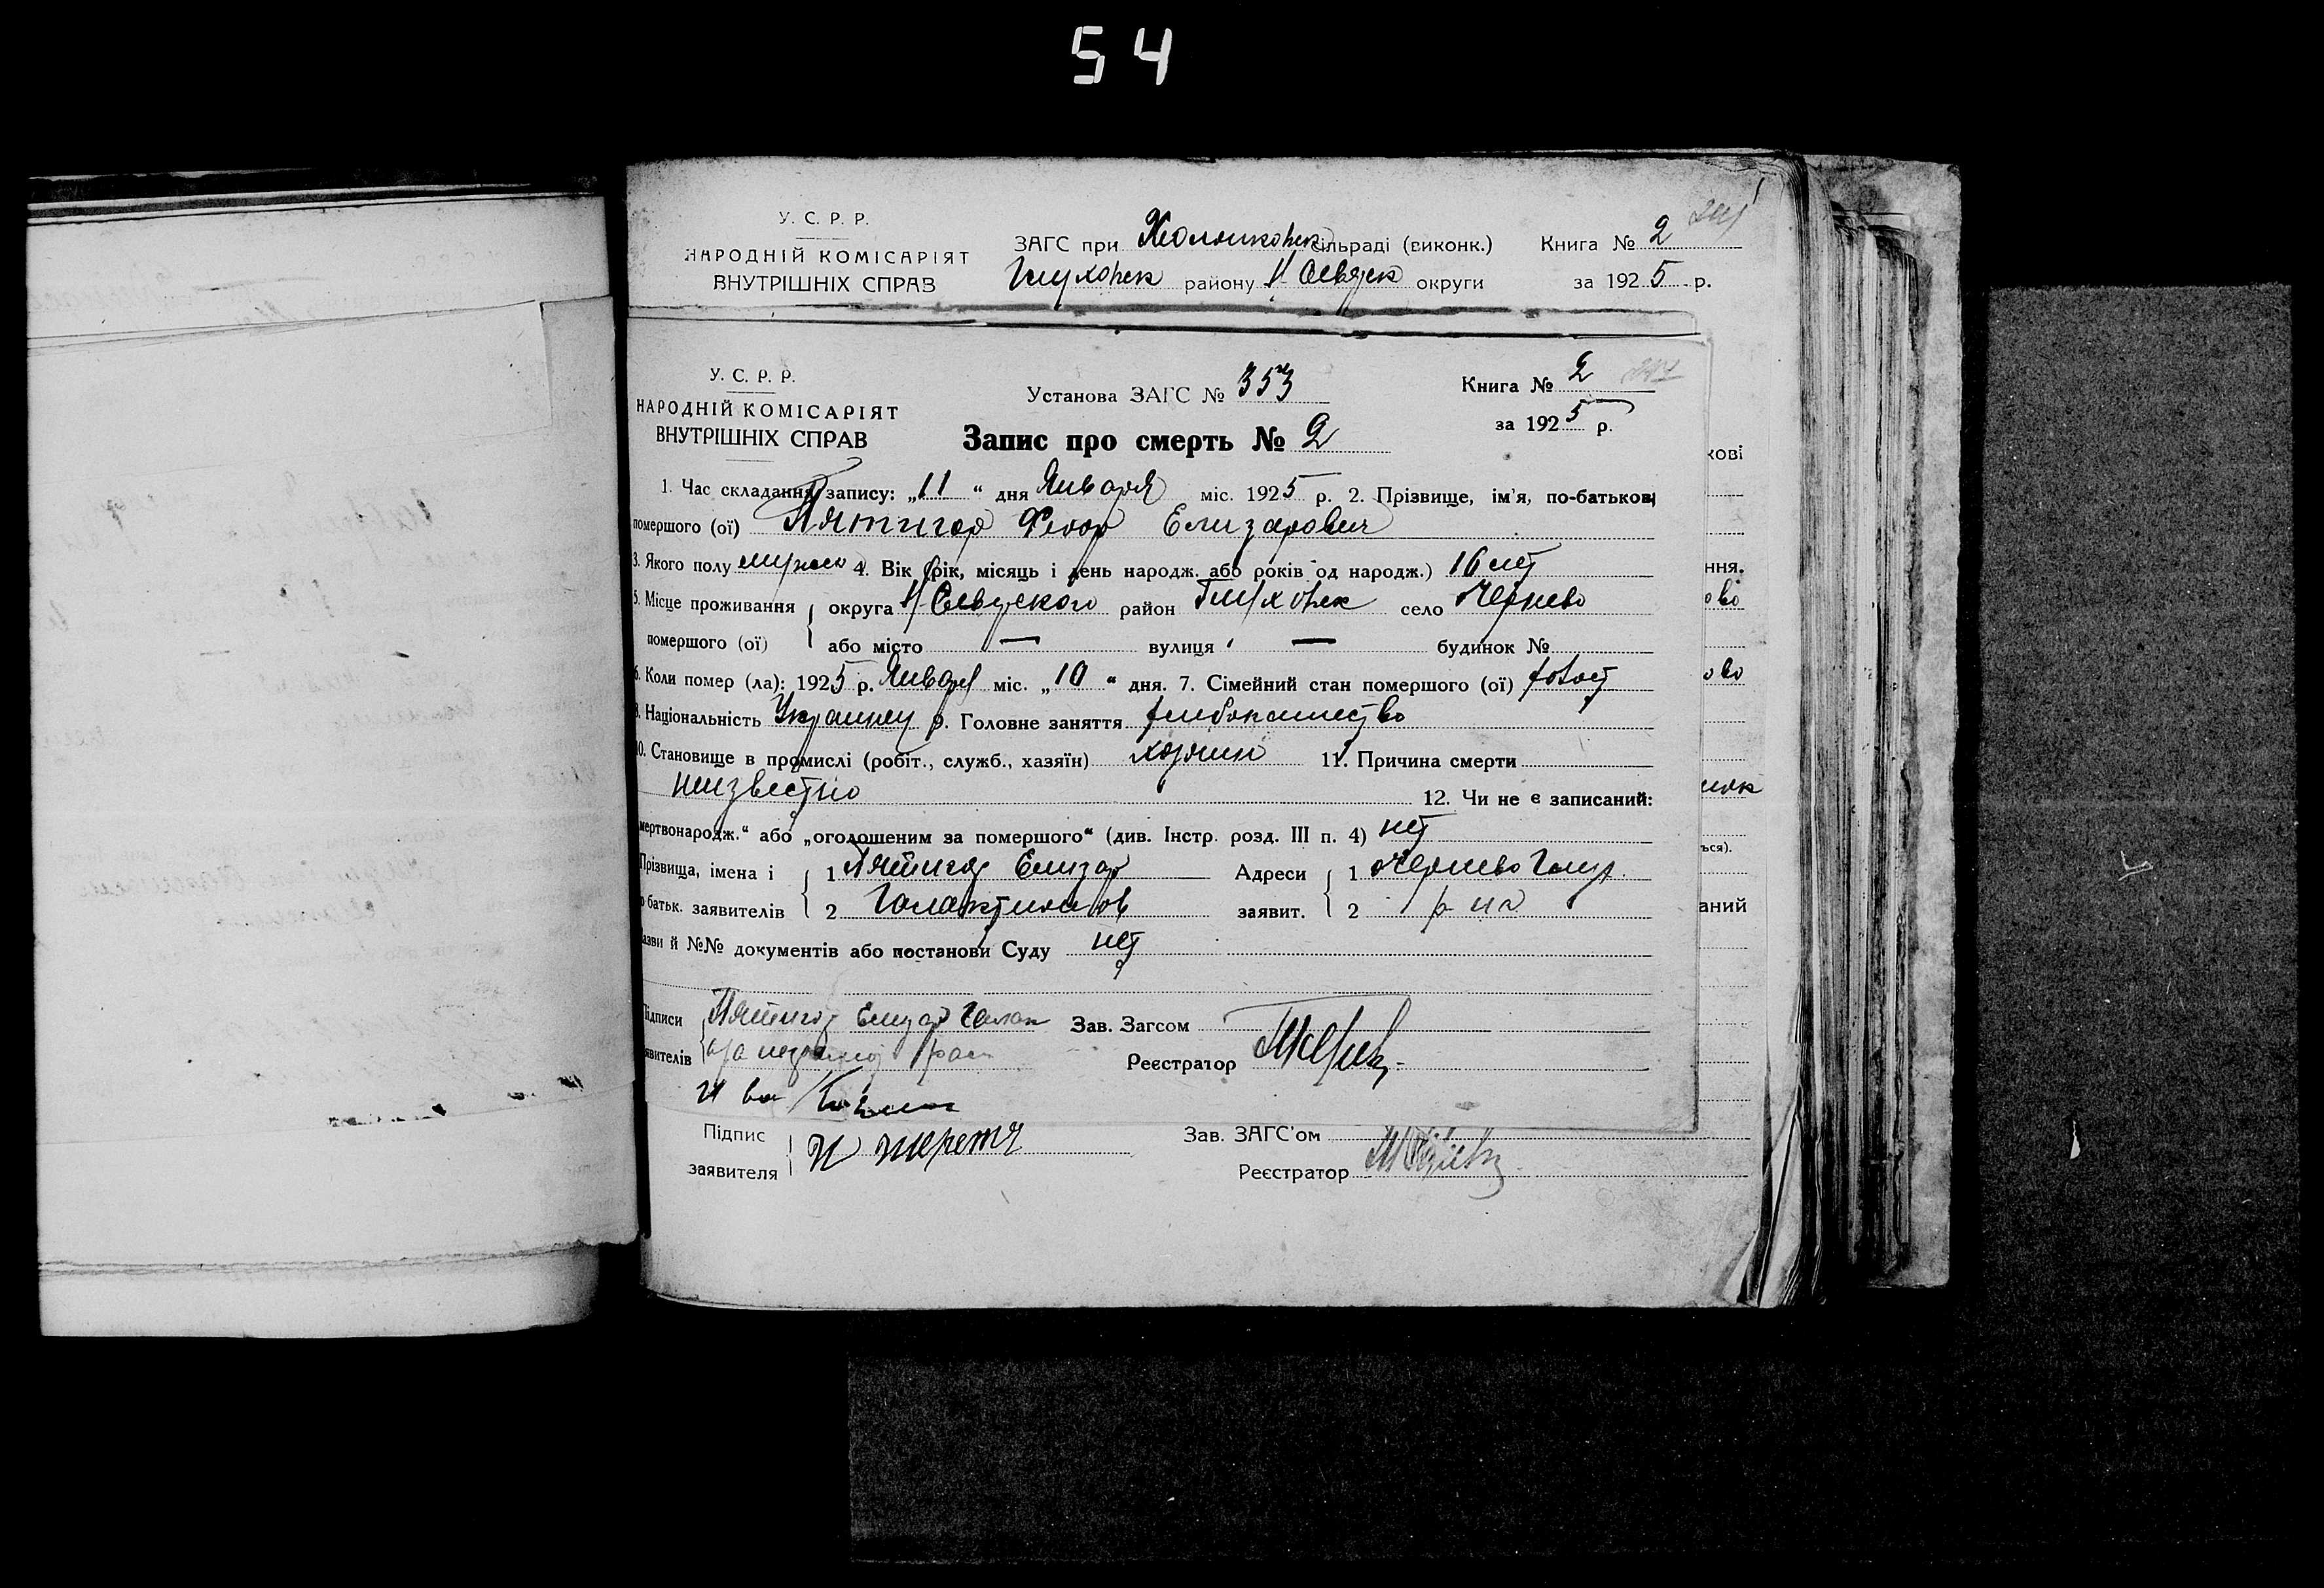 54
У. С. Р. Р.
НАРОДНІЙ КОМІСАРІЯТ
ВНУТРІШНІХ СПРАВ
ЗАГС при сільраді (виконк.)
Глуховск району Н Северск округи
Книга № 2
за 1925 р.
У. С. Р. Р.
НАРОДНІЙ КОМІСАРІЯТ
ВНУТРІШНІХ СПРАВ
Установа ЗАГС № 353
Книга № 2
за 1925 р.
Запис про смерть № 2
1. Час складання запису: „11“ дня Января міс. 1925 р. 2. Прізвище, ім'я, по-батькові
помершого (ої) Пятигор Федор Елизарович
3. Якого полу мужск 4. Вік (рік, місяць і день народж. або років од народж.) 16 лет
5. Місце проживання округа Н Северского район Глуховск село Чернево
помершого (ої) або місто — вулиця — будинок №
6. Коли помер (ла): 1925 р. Января міс. „10“ дня. 7. Сімейний стан помершого (ої) холост
8. Національність Украинец 9. Головне заняття хлебопашество
10. Становище в промислі (робіт., служб., хазяїн) хозяин 11. Причина смерти
неизвестно 12. Чи не є записаний:
мертвонародж.“ або „оголошеним за помершого“ (див. Інстр. розд. III п. 4) нет
Прізвища, імена і 1 Пятигор Елизар Адреси 1 Чернево Глух.
батьк. заявителів 2 Галактионов заявит. 2 р на
азви й №№ документів або постанови Суду нет
Підписи Пятигор Елизар Галак Зав. Загсом
явителів Реєстратор
Підпис
заявителя
Зав. ЗАГС'ом
Реєстратор
кові
ння.
ово
ово
ься).
аний